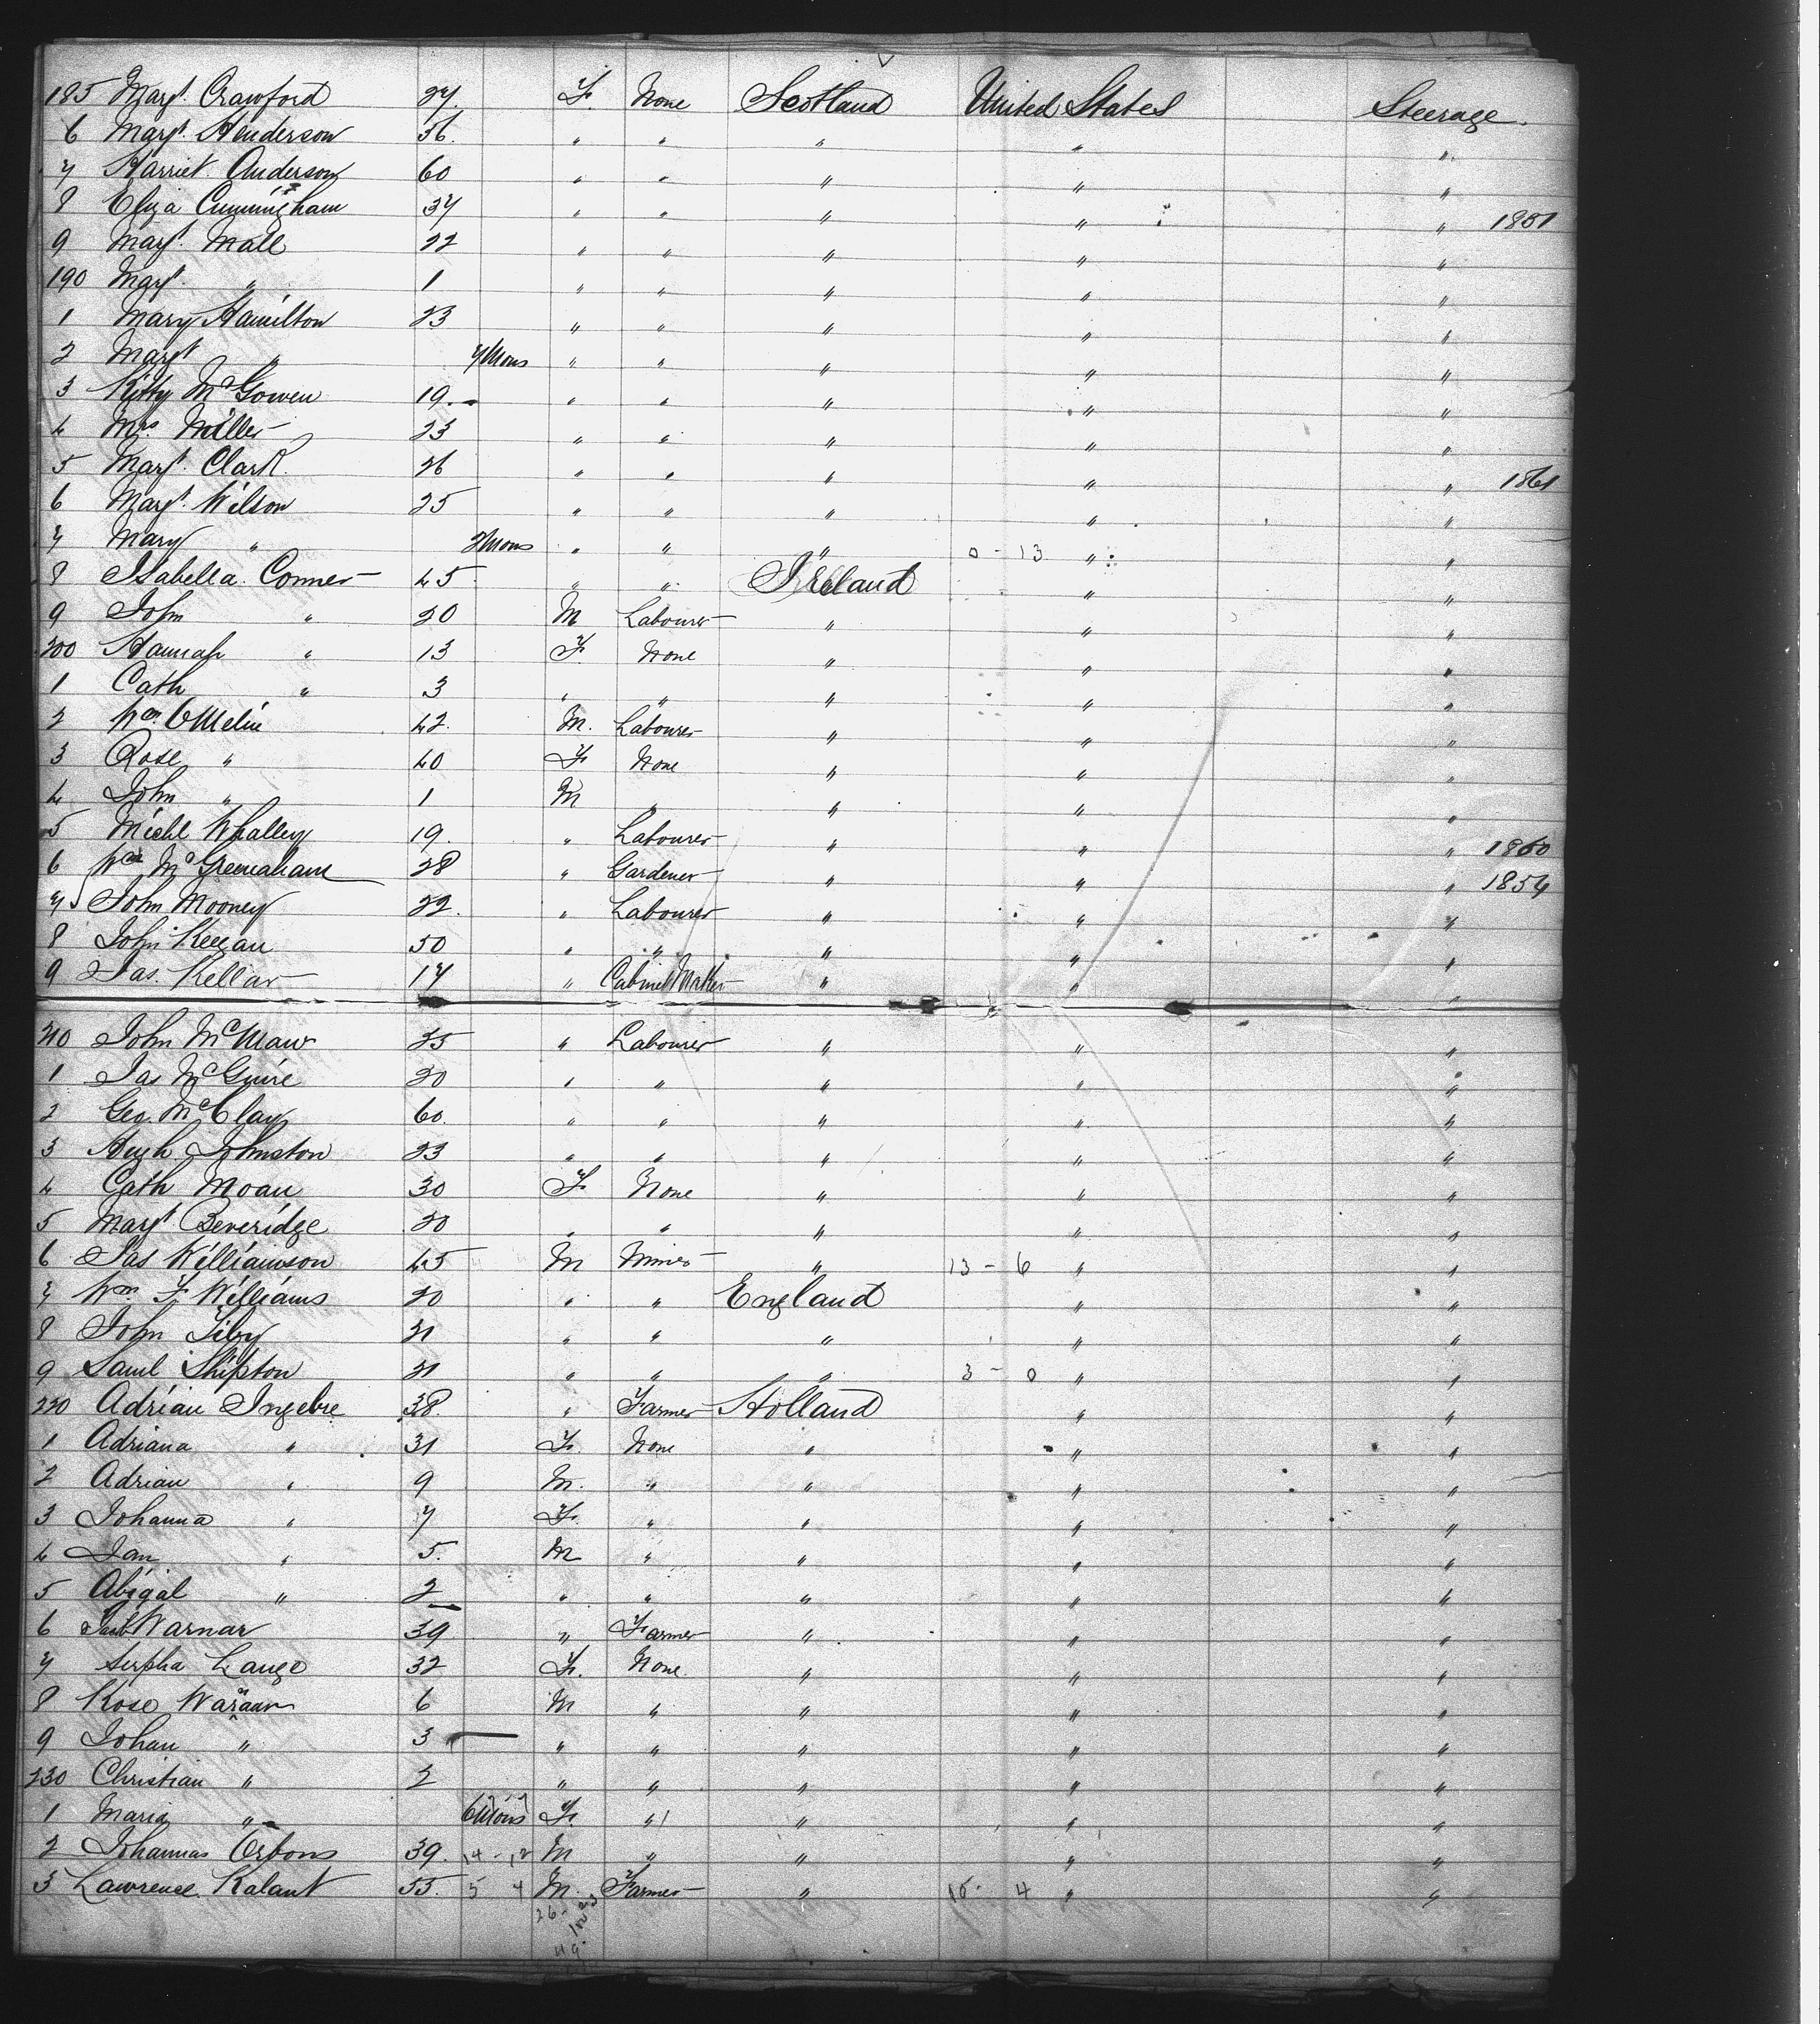 185 Margt. Crawford 27. F. None Scotland United States Steerage.
6 Margt. Henderson 36. " " " " "
7 Harriet Anderson 60 " " " " "
8 Eliza Cunningham 37 " " " " " 1851
9 Margt. Mall 22 " " " " "
190 Margt. " 1 " " " " "
1 Mary Hamilton 23 " " " " "
2 Margt " 7 Mons " " " " "
3 Kitty McGowen 19. " " " " "
4 Mrs. Miller 23 " " " " "
5 Margt. Clark. 26 " " " " " 1861
6 Margt. Wilson 25 " " " " "
7 Mary " 2 Mons " " " 0 - 13 " "
8 Isabella Conner 45 " " Ireland " "
9 John " 20 M Labourer " " "
200 Hannah " 13 F. None " " "
1 Cath " 3 " " " " "
2 Wm. 42. M. Labourer " " "
3 Rose " 40 F None " " "
4 John " 1 M " " " "
5 Michl Whalley 19. " Labourer " " " 1860
6 Wm 28 " Gardener " " " 1854
7 John Mooney 22. " Labourer " " "
8 John Keegan 50 " " " " "
9 Jas. Kellar 17 " Cabinet Maker " " "
210 John 25 " Labourer " " "
1 Jas McGuire 20 " " " " "
2 Geo. McClay 60. " " " " "
3 Hugh Johnston 23 " " " " "
4 Cath Moan 30 F. None " " "
5 Margt Beveridge 20 " " " " "
6 Jas Williamson 45 M Miner " 13 - 6 " "
7 Wm F Williams 20 " " England " "
8 John 21 " " " " "
9 Saml Shipton 21 " " " 3 - 0 " "
220 Adrian Ingebre 38. " Farmer Holland " "
1 Adriana " 31 F. None " " "
2 Adrian " 9 M. " " " "
3 Johanna " 7 F. " " " "
4 Jan " 5. M " " " "
5 Abigal " 2 " " " " "
6 Warnar 39 " Farmer " " "
7 Lange 32 F. None. " " "
8 Rose 6 M " " " "
9 Johan " 3 " " " " "
230 Christian " 2 " " " " "
1 Maria " 6 Mons F. " " " "
2 Johannas Orbons 39. 14 - 12 M " " " "
3 Lawrence Kalant 55. 5 4 M. Farmer " 15 - 4 " "
26 -